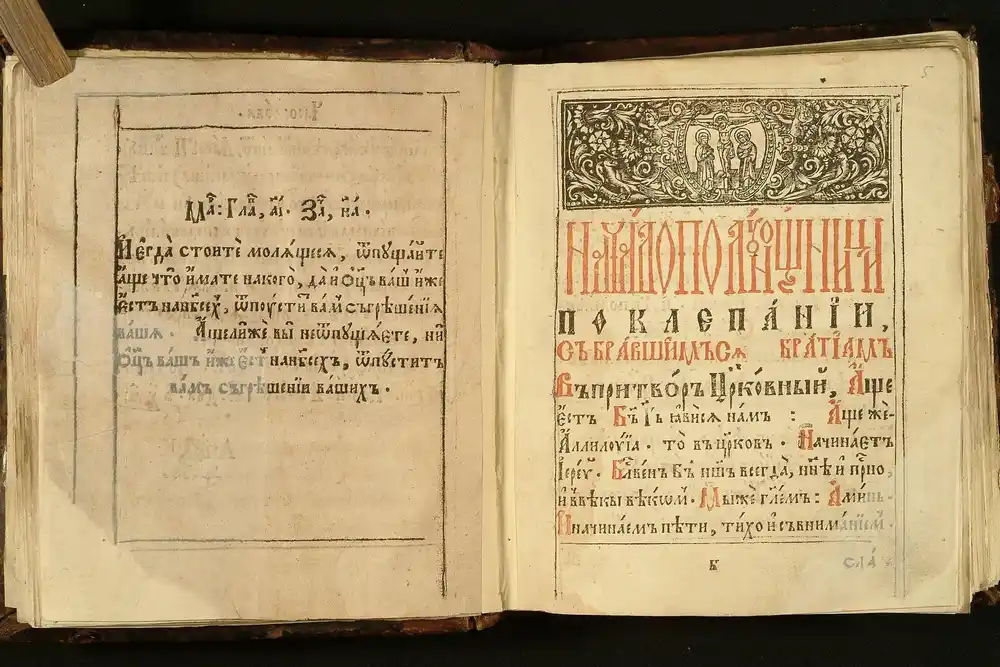 Ма҃: Гла҃, а҃і. За҃, ка҃.
И҆ є҆гда̀ стоитѐ молѧ́щесѧ, ѿпꙋща́йте
а҆́ще что̀ и҆́мате накого̀, да и҆ ѻ҆ц҃ъ ва́ш и҆́же
є҆́стъ нанб҃сеⷯ, ѿпоу́стиⷮ ва́м съгрѣше́нїꙗ
ва́шѧ. А҆́щелиже вы̀ неѿпꙋща́ете, ни
ѻ҆ц҃ъ ва́шъ и҆́же є҆́ст нанб҃сехъ, ѿпꙋститъ
ва́мъ съгрѣшенїи ва́шихъ.
5
НАЧѦЛО ПОЛꙊНОЩНИЦИ
ПОКЛЕПА́НЇИ,
СЪБРА́ВШИМЪСѦ БРА́ТЇАМЪ
Въпритво́ръ Цр҃ко́вный, А҆́ще
є҆́стъ Бг҃ъ Гь҃ ꙗ҆ви́сѧ на́мъ : А҆́ще же-
Аллилꙋ́їа. то̀ въцр҃ковъ. Начина́етъ
І҆ере́ꙋ. Блⷭ҇ве́н Бг҃ъ на́шъ всегда̀, нн҃ѣ и҆ при́сно,
и҆ ввѣ́кы вѣкѡ́м. Мы́же гл҃емъ: А҆ми́нь.
И҆ начина́емъ пѣ́ти, ти́хо и҆ съвнима́нїем.
б҃
сла́